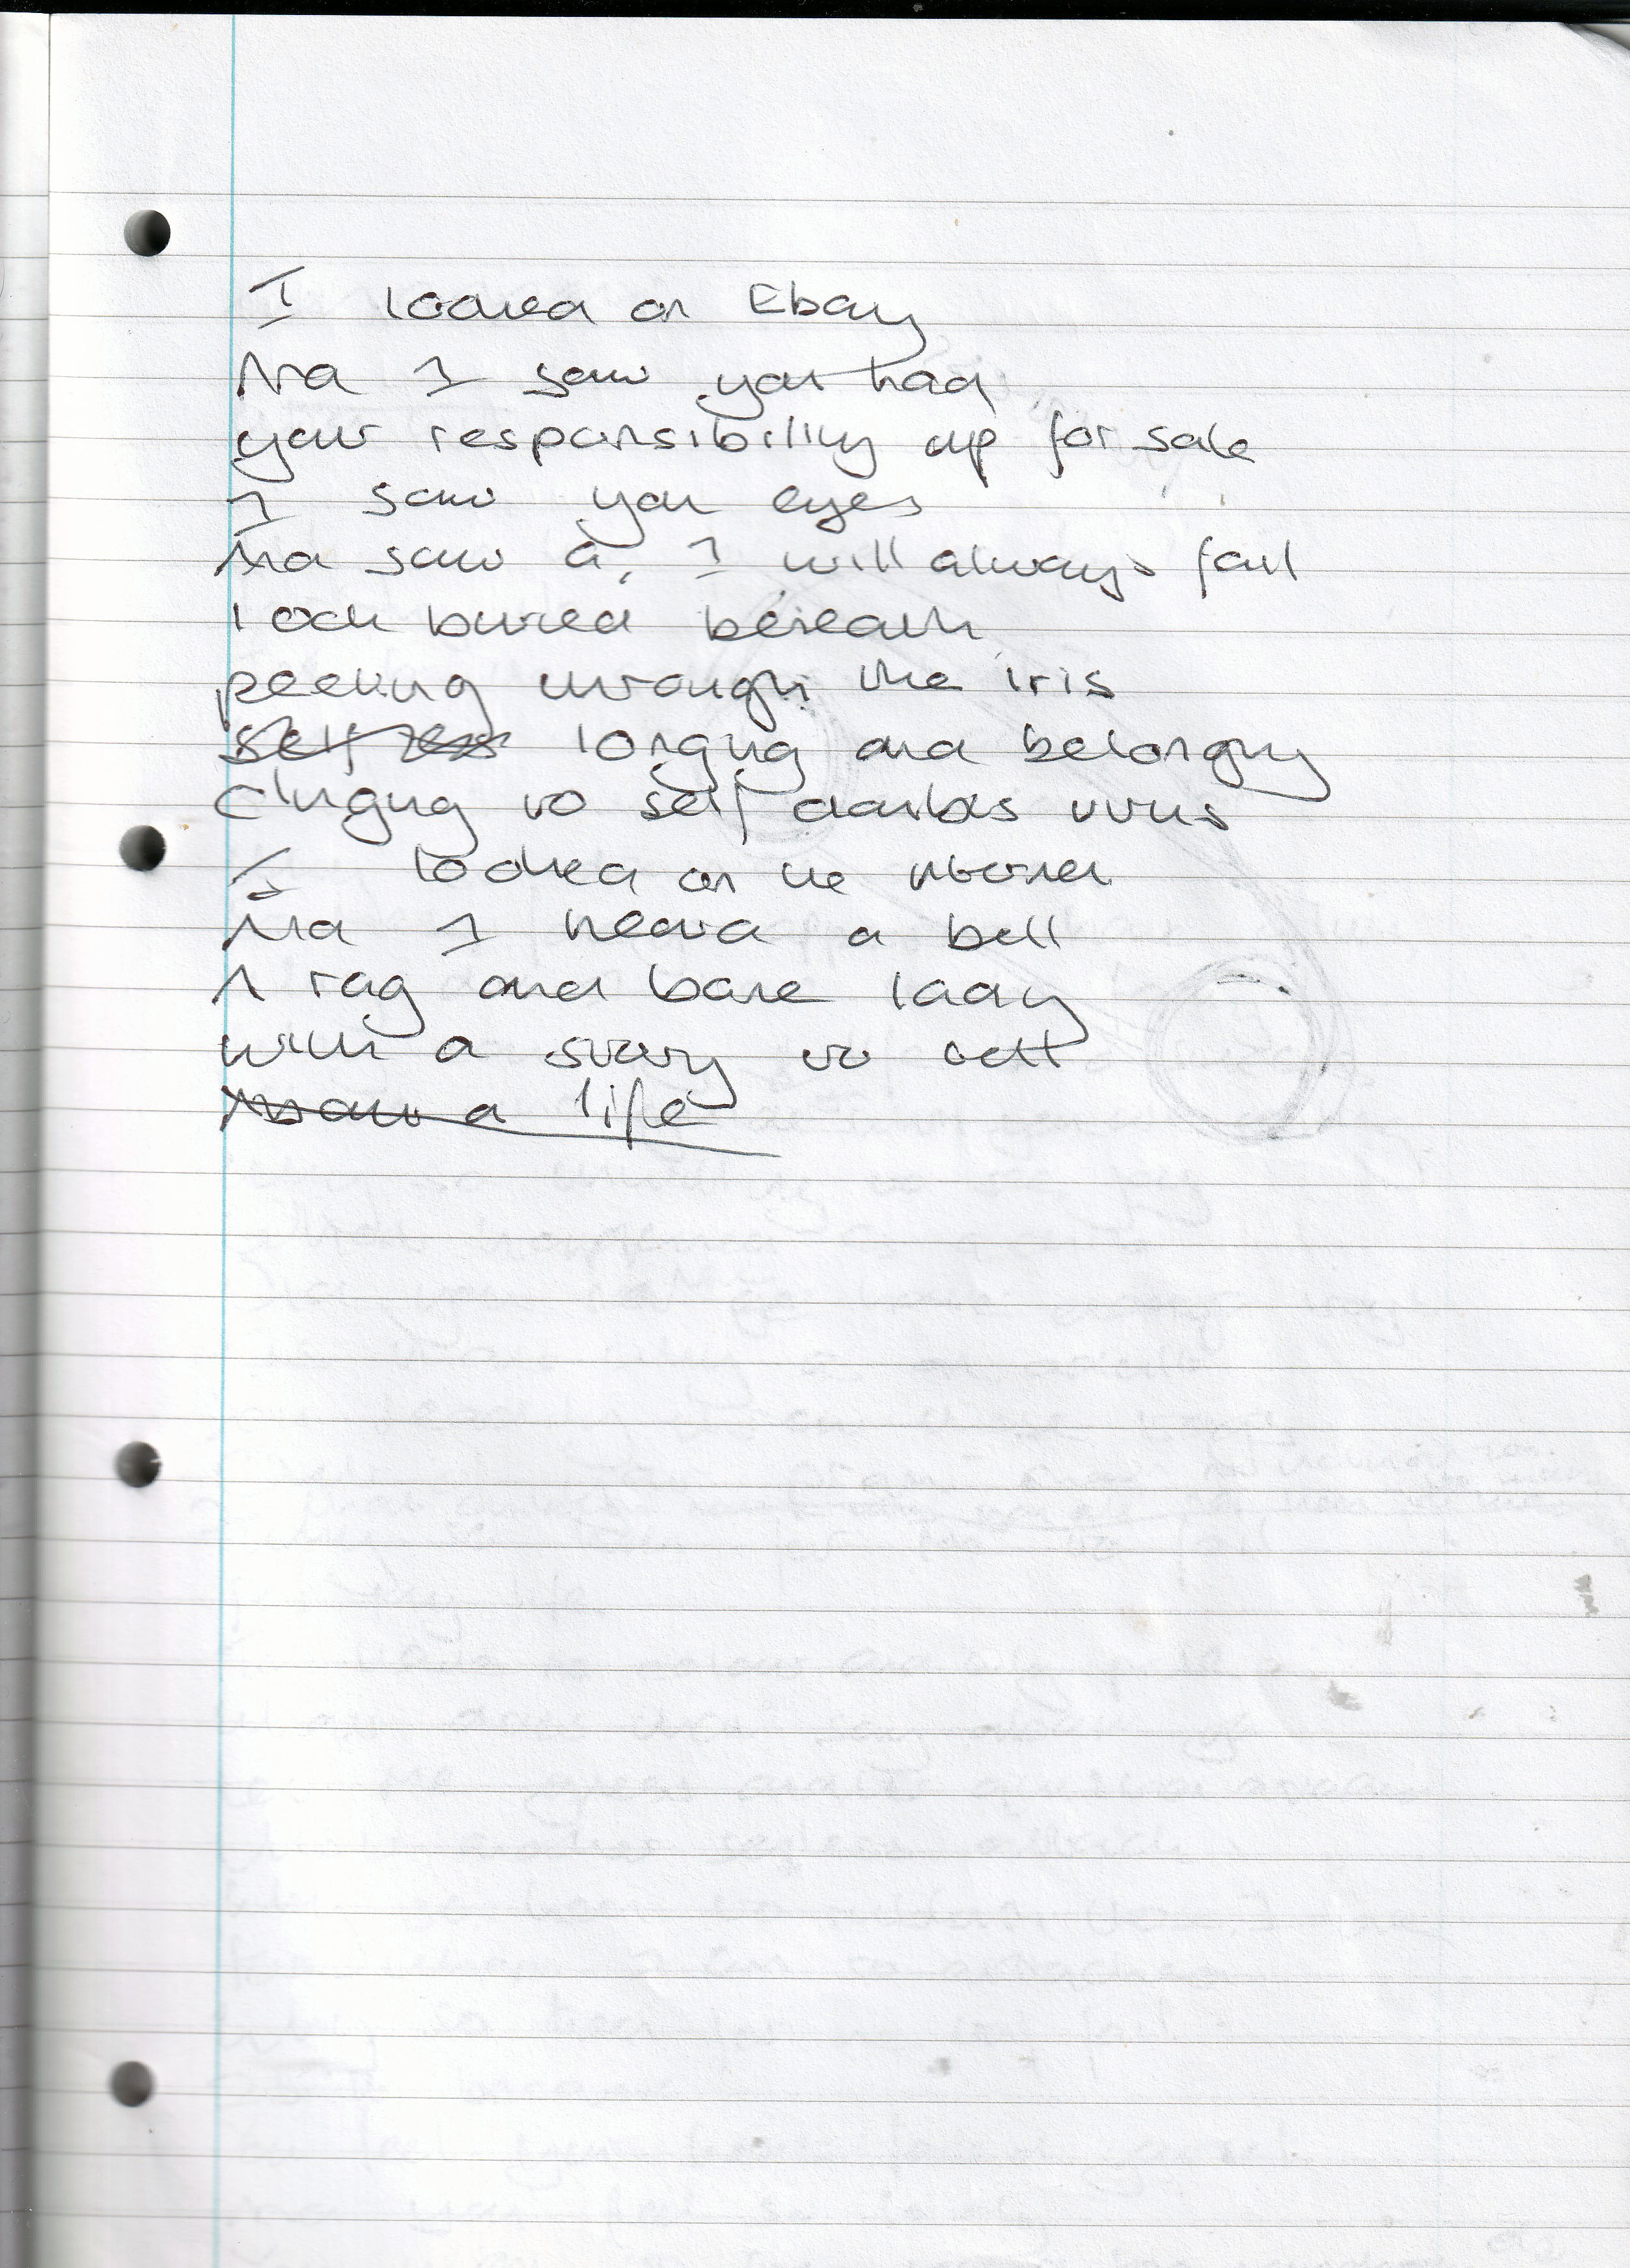 I looked on Ebay
And I saw you had
your responsibility up for sale
I saw you eyes
And saw a, I will always fail
look buried beneath
peeking through the iris
selfless longing and belonging
clinging to self doubts virus
I looked on the internet
And I heard a bell
A rag and bone lady
with a story to sell
a life